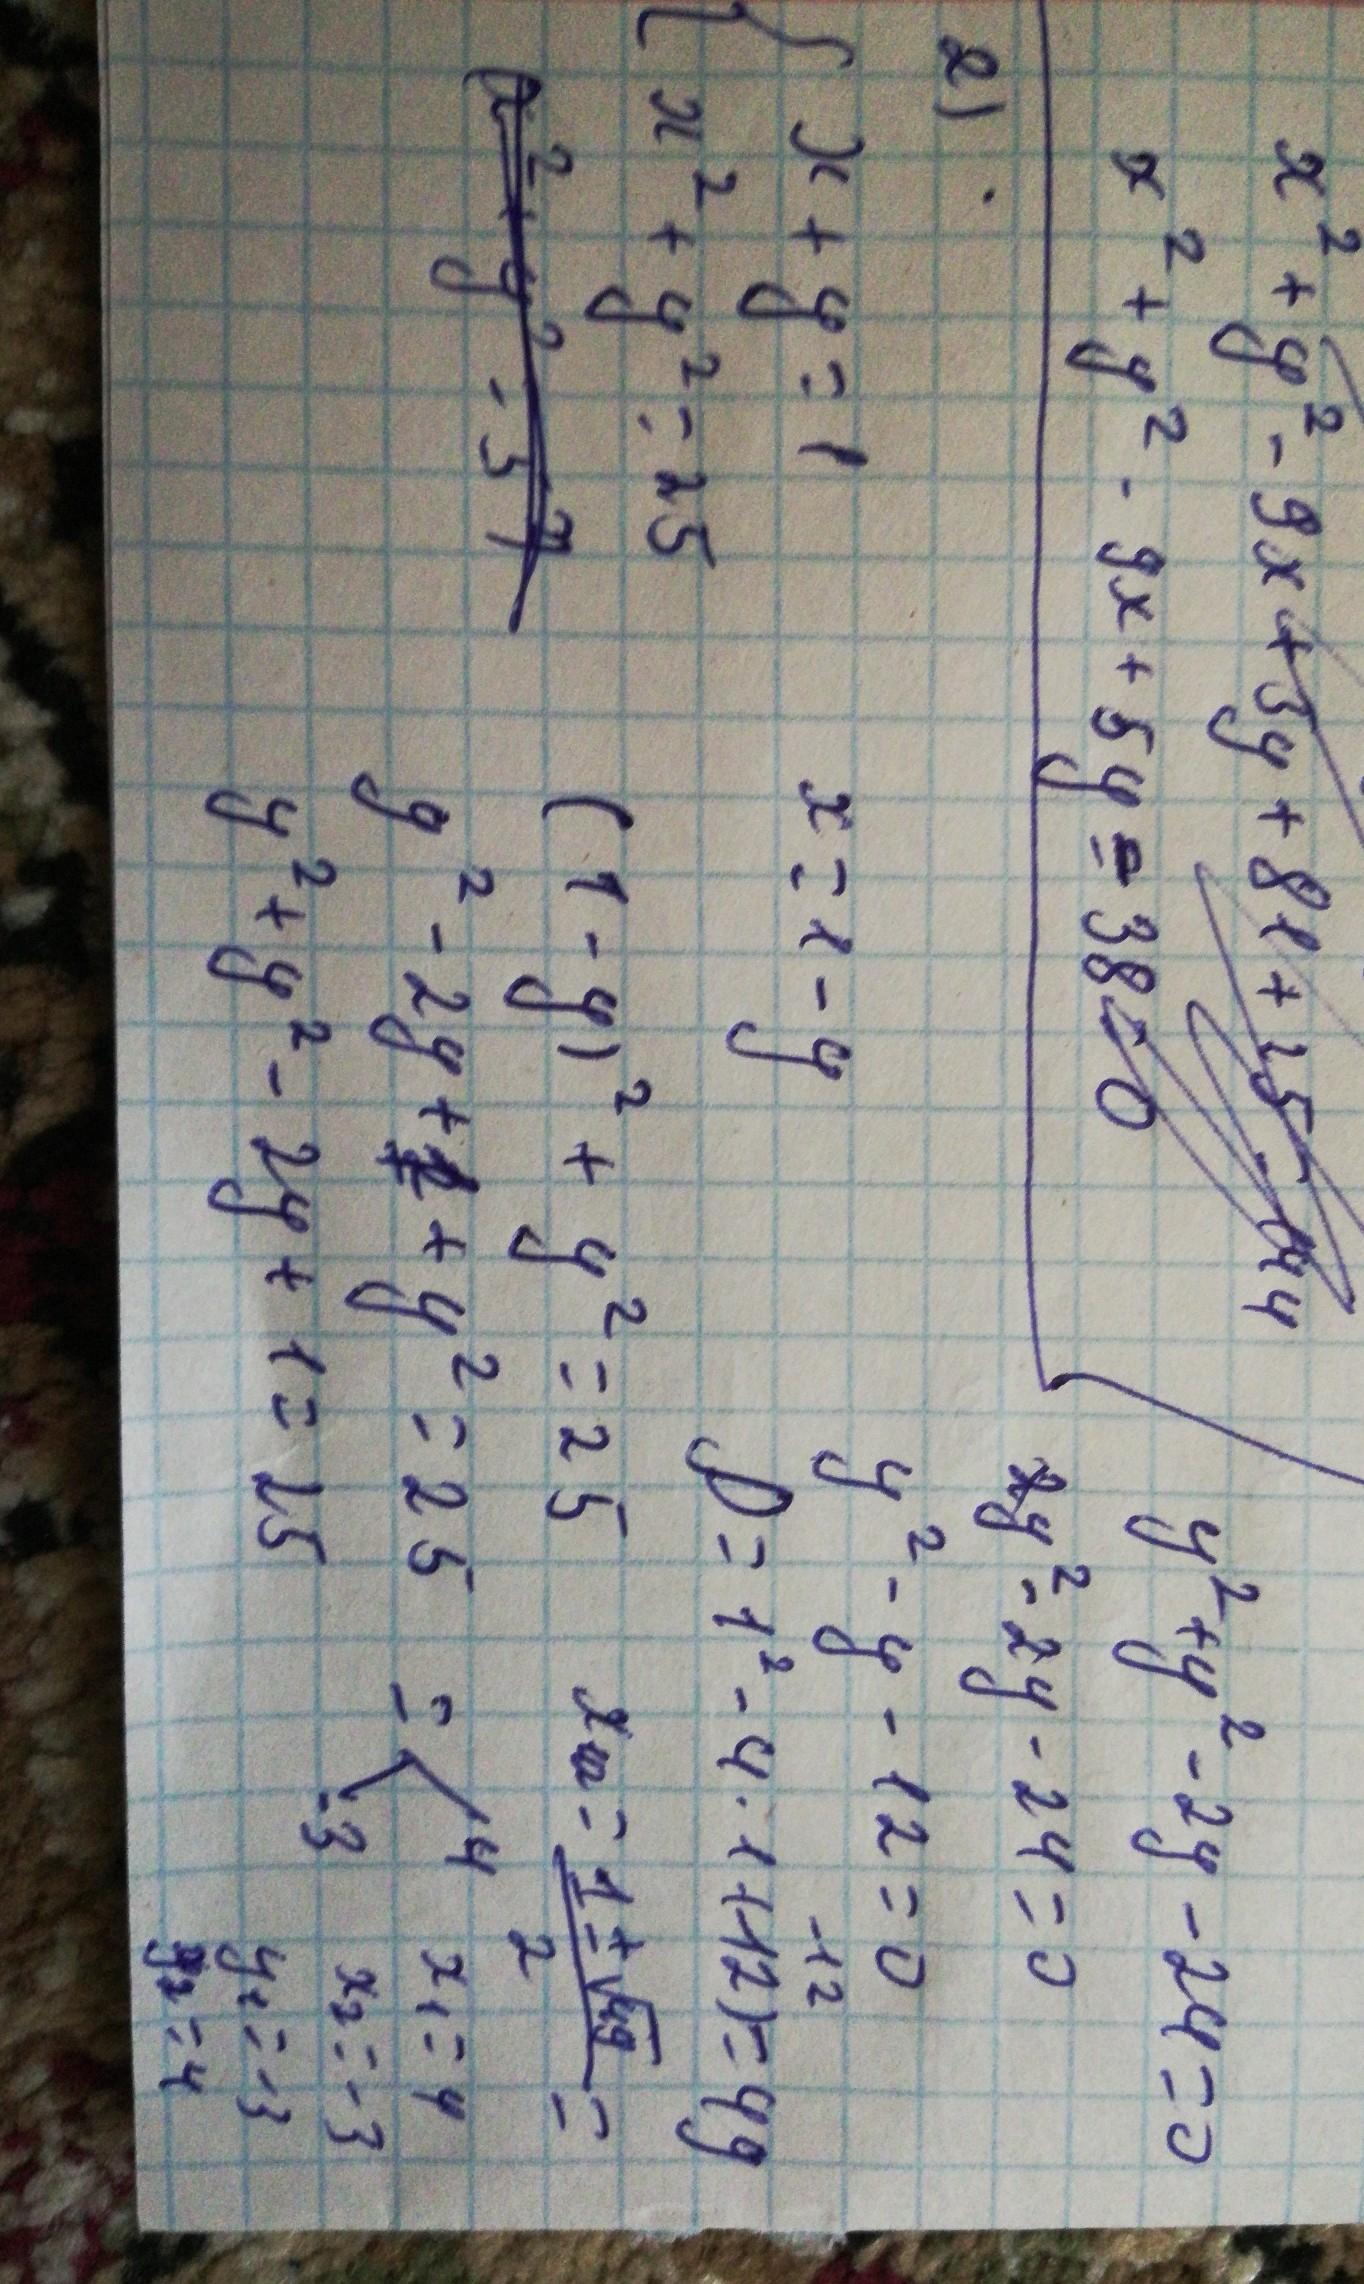 x² + y² - 9x + 5y + 81 + 25 - 144
x² + y² - 9x + 5y = 38 0
2)
{ x + y = 1
x² + y² = 25
x² + y² - 5²
x = 1 - y
(1 - y)² + y² = 25
y² - 2y + 1 + y² = 25
y² + y² - 2y + 1 = 25
y² + y² - 2y - 24 = 0
2y² - 2y - 24 = 0
y² - y - 12 = 0
-12
D = 1² - 4 · 1 + 12) = 49
= 1 ± √49 =
2
= 4
-3
x₁ = 4
x₂ = -3
y₁ = -3
y₂ = 4